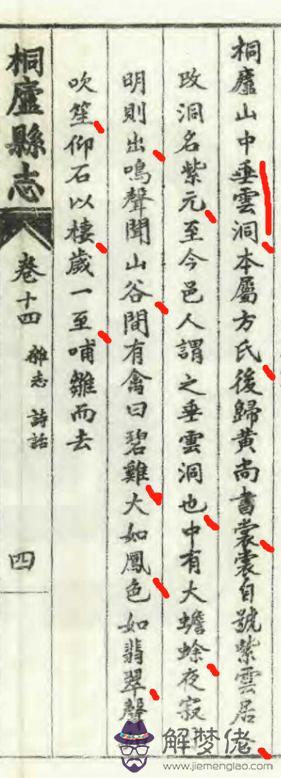 桐廬山中垂雲洞本屬方氏後歸黃尚書裳裳自號紫雲居
改洞名紫元至今邑人謂之垂雲洞也中有大蟾蜍夜寂
明則出鳴聲聞山谷間有禽曰碧雞大如鳳色如翡翠聲
吹笙仰石以棲歲一至哺雛而去
桐廬縣志
卷十四
雜志 詩話
四
解梦佬
www.jiemenglao.com